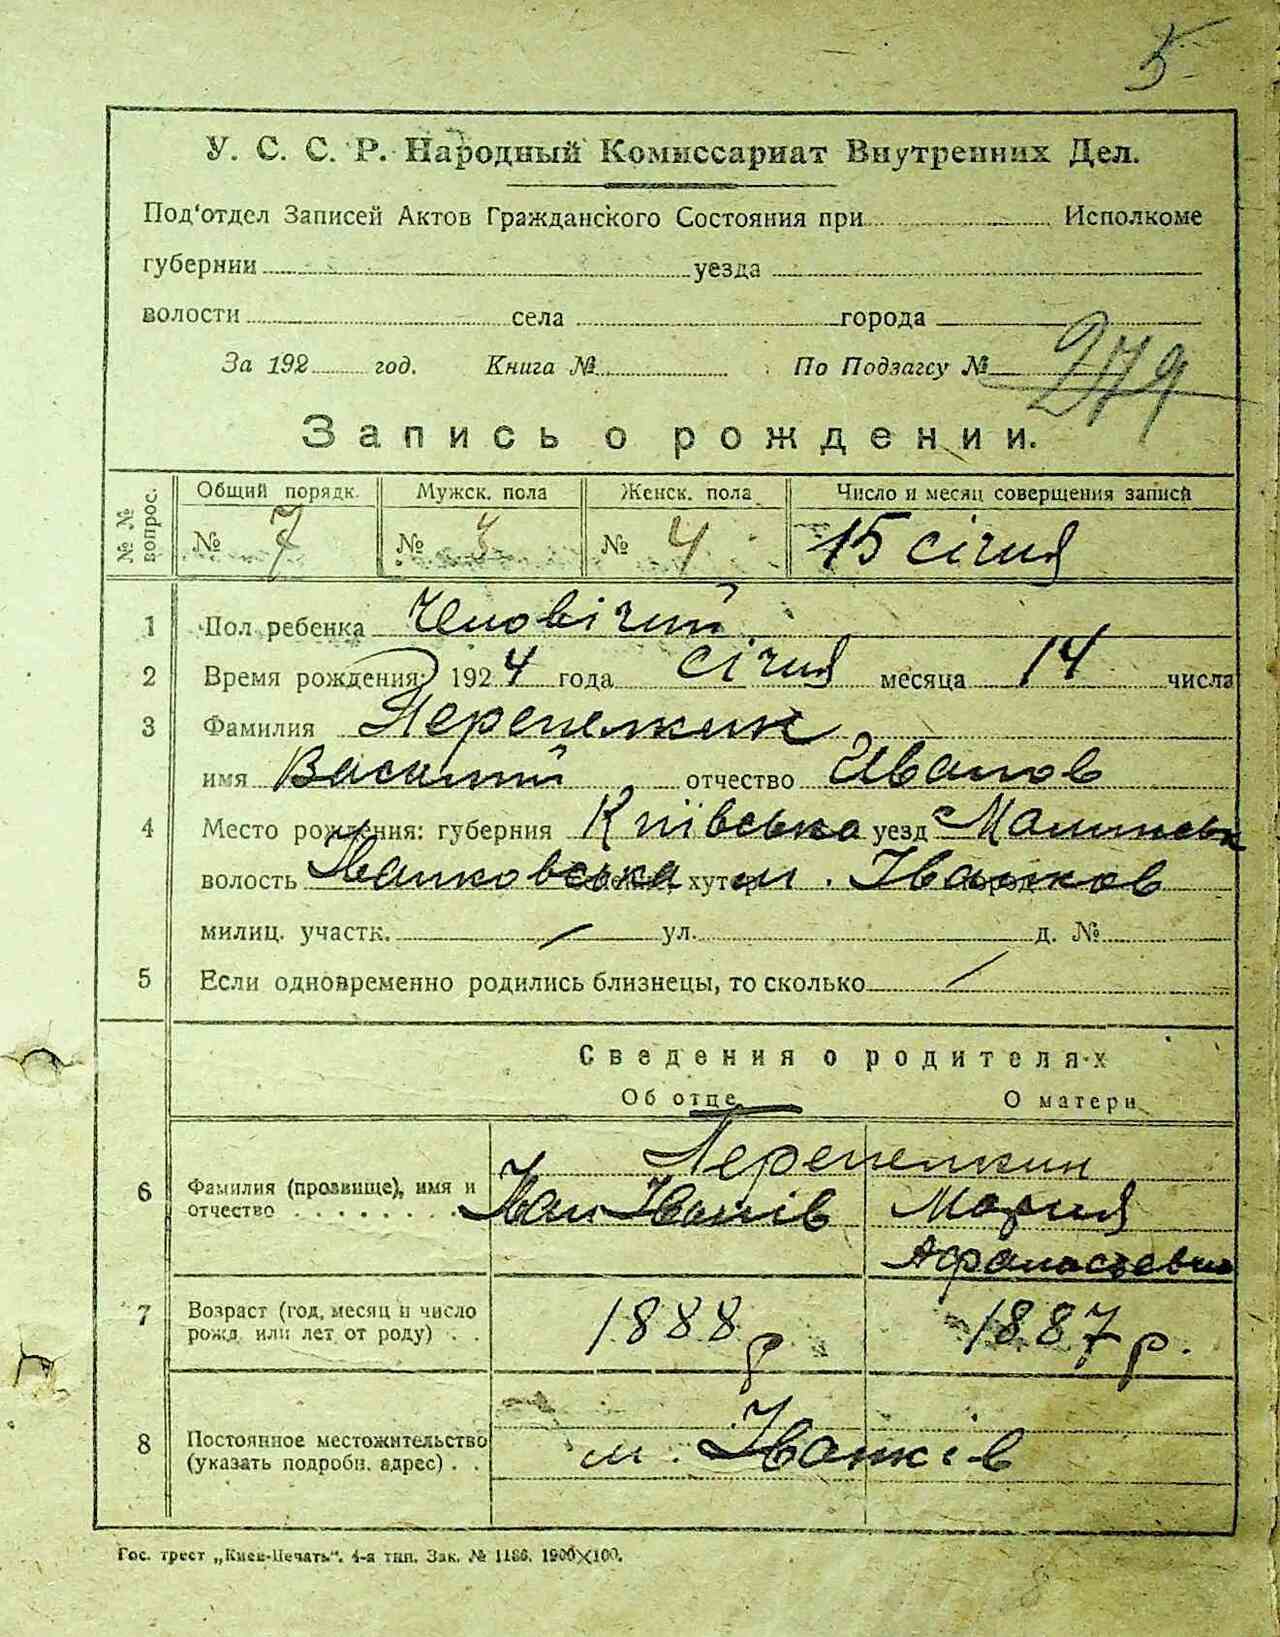 5
У. С. С. Р. Народный Комиссариат Внутренних Дел.
Под‘отдел Записей Актов Гражданского Состояния при Исполкоме
губернии уезда
волости села города
За 192 год. Книга № По Подзагсу № 279
Запись о рождении.
№ № вопрос. Общий порядк. Мужск. пола Женск. пола Число и месяц совершения записи
№ 7 № 3 № 4 15 січня
1 Пол ребенка Чоловічий
2 Время рождения: 1924 года січня месяца 14 числа
3 Фамилия Перепелкин
имя Василий отчество Иванов
4 Место рождения: губерния Київська уезд Малинськ
волость Іванковська хутор м. Іванков
милиц. участк. / ул. д. №
5 Если одновременно родились близнецы, то сколько /
Сведения о родителях
Об отце О матери
Перепелкин
6 Фамилия (прозвище), имя и отчество . . . . . . . . Іван Іванів Мария
Афанасьевна
7 Возраст (год, месяц и число рожд. или лет от роду) . . 1888 р 1887 р.
8 Постоянное местожительство (указать подробн. адрес) . . м. Іванків
Гос. трест „Киев-Печать“. 4-я тип. Зак. № 1186. 1900×100.